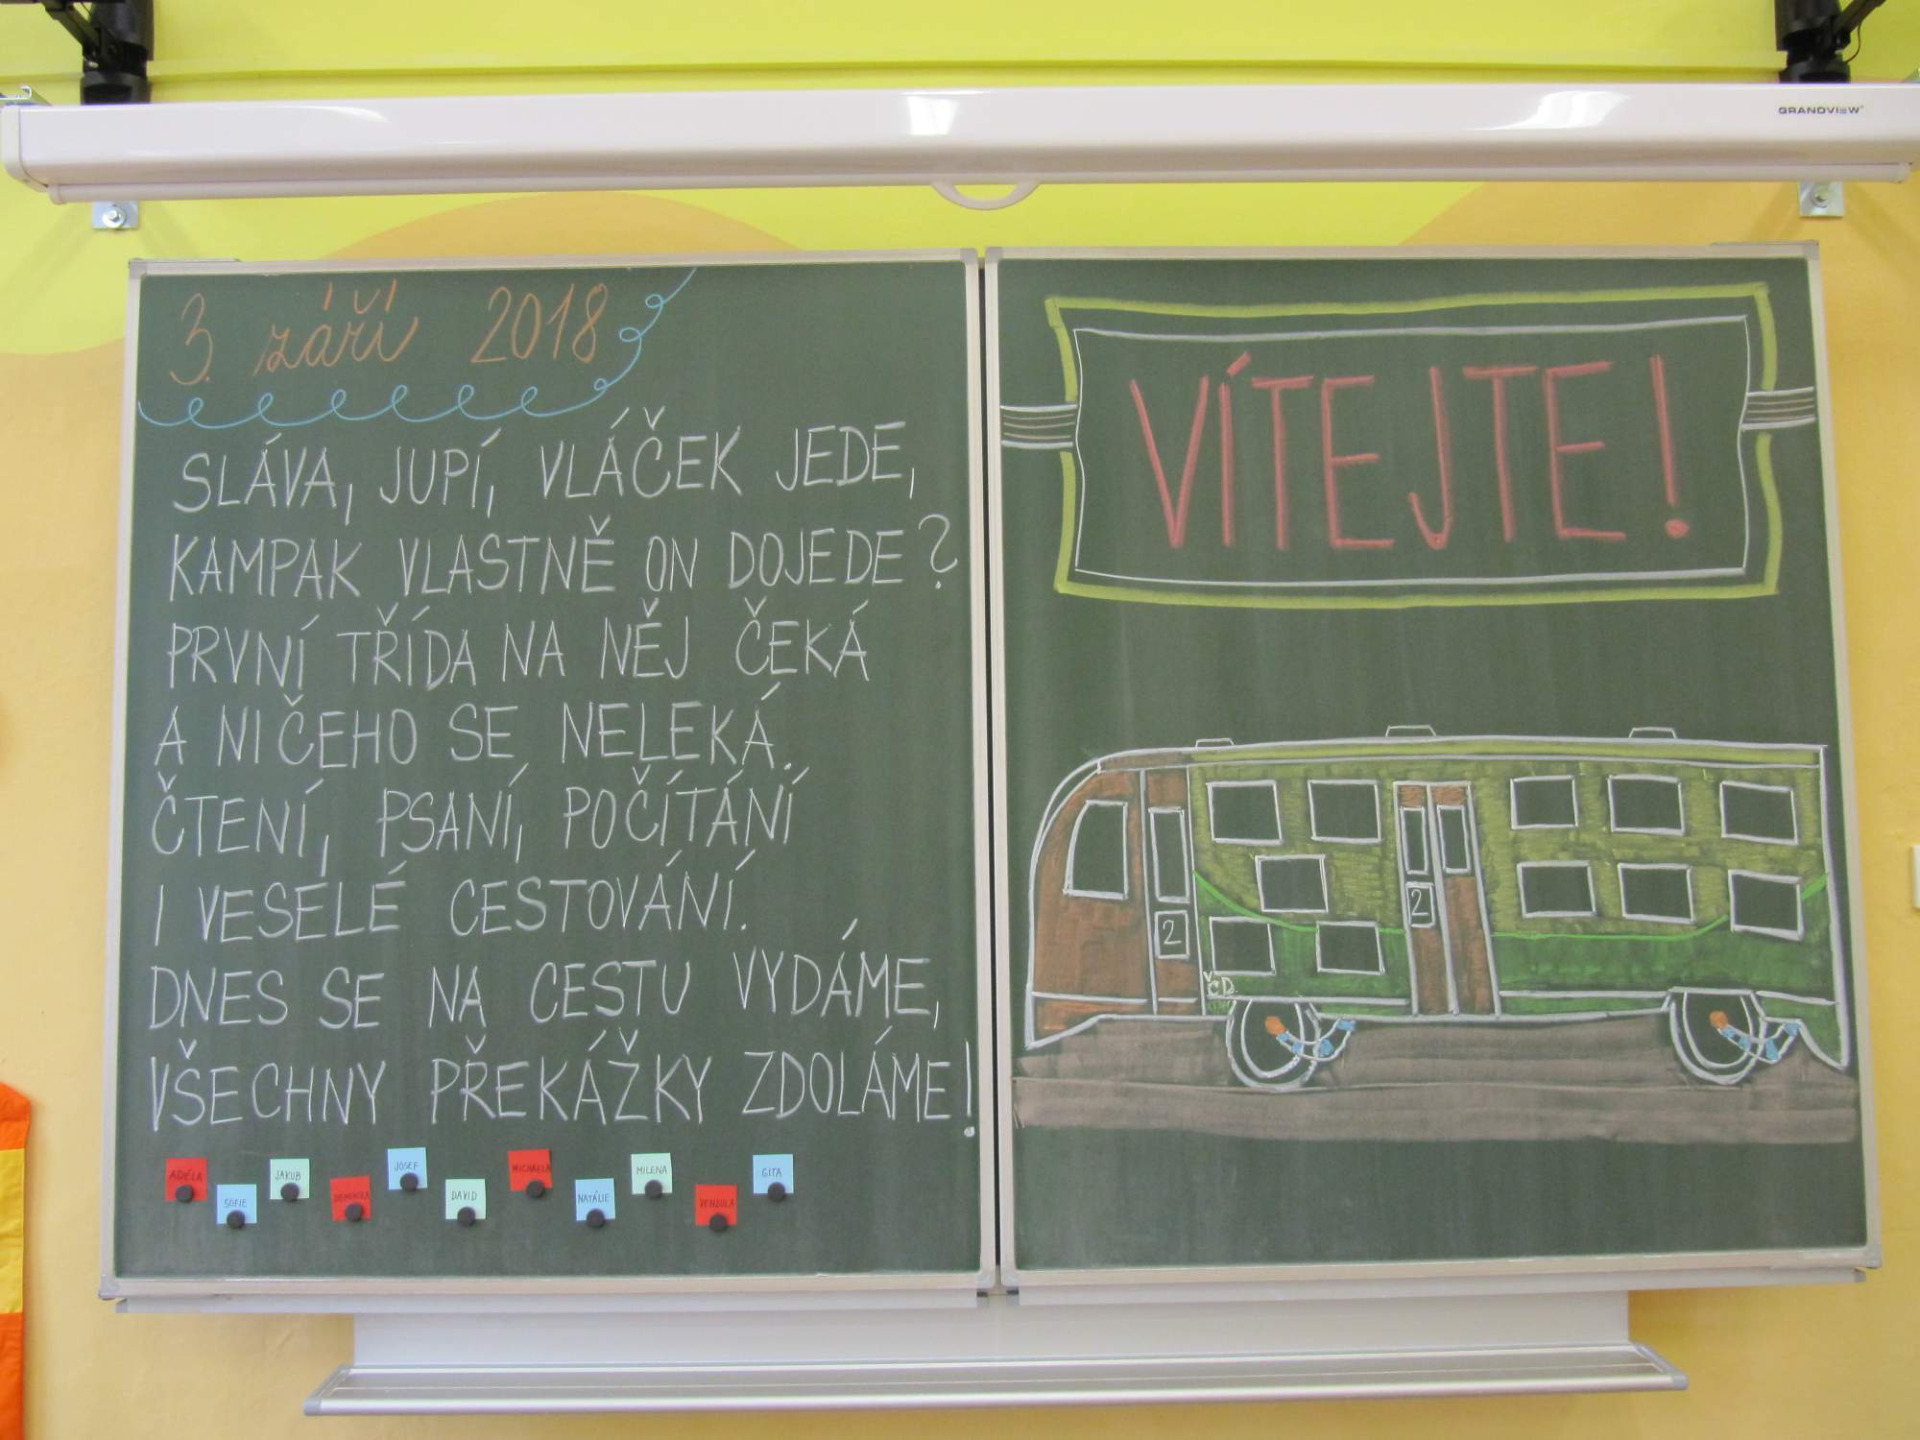 GRANDVIEW
3. září 2018
SLÁVA, JUPÍ, VLÁČEK JEDE,
KAMPAK VLASTNĚ ON DOJEDE?
PRVNÍ TŘÍDA NA NĚJ ČEKÁ
A NIČEHO SE NELEKÁ.
ČTENÍ, PSANÍ, POČÍTÁNÍ
I VESELÉ CESTOVÁNÍ.
DNES SE NA CESTU VYDÁME,
VŠECHNY PŘEKÁŽKY ZDOLÁME!
ADÉLA
SOFIE
JAKUB
DOMINIKA
JOSEF
DAVID
MICHAELA
NATÁLIE
MILENA
VENDULA
GITA
VÍTEJTE!
2
2
ČD